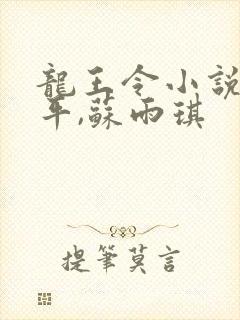 龍王令小說
平,蘇雨琪
提筆莫言